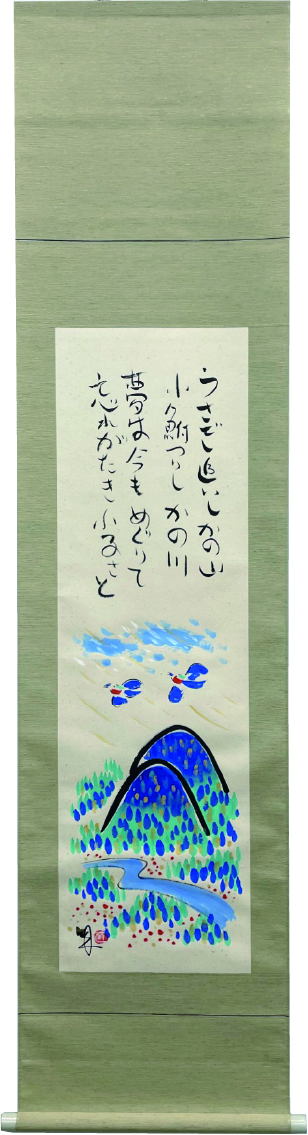 うさぎ追いしかの山
小鮒つりしかの川
夢は今もめぐりて
忘れがたきふるさと